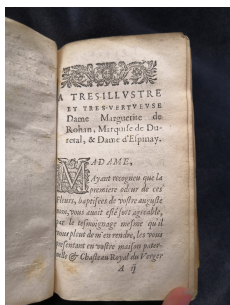 A TRES-ILLUSTRE
ET TRES-VERTVEVSE
Dame Marguerite de
Rohan, Marquise de Du-
retal, & Dame d'Espinay.
MADAME,
Ayant recogneu que la
premiere odeur de ces
Fleurs, baptisees de vostre auguste
nom, vous auoit esté fort agreable,
par le tesmoignage mesme qu'il
vous pleut de m'en rendre, les vous
presentant en vostre maison pater-
nelle & Chasteau Royal du Verger
A ij